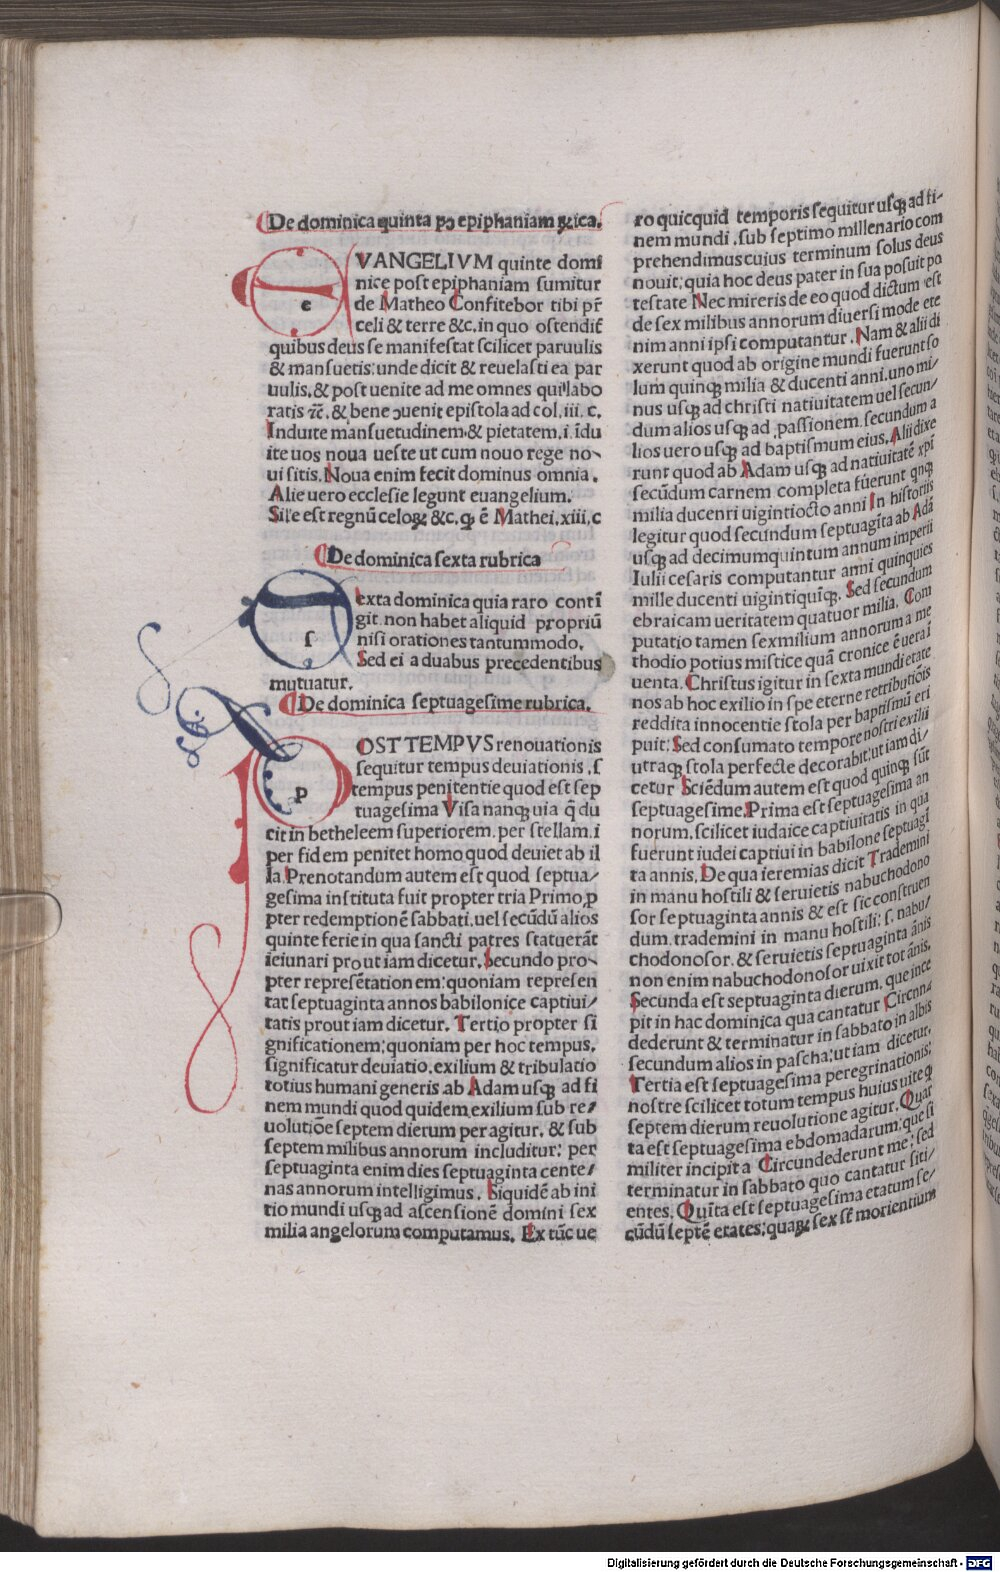 De dominica quinta pꝰ epiphaniam ꝶica.
EVANGELIVM quinte domī
nice post epiphaniam sumitur
de Matheo Confitebor tibi pr̄
celi & terre &c. in quo ostendiť
quibus deus se manifestat scilicet paruulis
& mansuetis: unde dicit & reuelasti ea par
uulis. & post uenite ad me omnes qui labo
ratis ⁊c̄. & bene ɔuenit epistola ad col. iii. c.
Induite mansuetudinem & pietatem. i. īdu
ite uos noua ueste ut cum nouo rege no-
ui sitis. Noua enim fecit dominus omnia.
Alie uero ecclesie legunt euangelium.
Sile est regnū celoꝝ &c. qꝫ ē Mathei. xiii. c
De dominica sexta rubrica
Sexta dominica quia raro contī
git. non habet aliquid propriū
nisi orationes tantummodo.
Sed ei a duabus precedentibus
mutuatur.
De dominica septuagesime rubrica.
POST TEMPVS renouationis
sequitur tempus deuiationis. s
tempus penitentie quod est sep
tuagesima Visa nanqꝫ uia q̄ du
cit in betheleem superiorem. per stellam. i
per fidem penitet homo quod deuiet ab il
la. Prenotandum autem est quod septua/
gesima instituta fuit propter tria Primo. ꝓ
pter redemptionē sabbati. uel secūdū alios
quinte ferie in qua sancti patres statuerāt
ieiunari prout iam dicetur. Secundo pro-
pter represētationem: quoniam represen
tat septuaginta annos babilonice captiui/
tatis prout iam dicetur. Tertio propter si
gnificationem: quoniam per hoc tempus.
significatur deuiatio. exilium & tribulatio
totius humani generis ab Adam usqꝫ ad fi
nem mundi quod quidem exilium sub re/
uolutiōe septem dierum peragitur. & sub
septem milibus annorum includitur: per
septuaginta enim dies septuaginta cente/
nas annorum intelligimus. Siquidē ab ini
tio mundi usqꝫ ad ascensionē domini sex
milia angelorum computamus. Ex tūc ue
ro quicquid temporis sequitur usqꝫ ad fi-
nem mundi. sub septimo millenario com
prehendimus cuius terminum solus deus
nouit: quia hoc deus pater in sua posuit po
testate Nec mireris de eo quod dictum est
de sex milibus annorum diuersi mode ete
nim anni ipsi computantur. Nam & alii di
xerunt quod ab origine mundi fuerunt so
lum quinqꝫ milia & ducenti anni. uno mi/
nus usqꝫ ad christi natiuitatem uel secun/
dum alios usqꝫ ad passionem. secundum a
lios uero usqꝫ ad baptismum eius. Alii dixe
runt quod ab Adam usqꝫ ad natiuitatē xpī
secūdum carnem completa fuerunt qnqꝫ
milia ducenri uigintiocto anni In historiis
legitur quod secundum septuagīta ab Adā
usqꝫ ad decimumquintum annum imperii
Iulii cesaris computantur anni quinquies
mille ducenti uigintiquīqꝫ. Sed secundum
ebraicam ueritatem quatuor milia. Com
putatio tamen sexmilium annorum a me
thodio potius mistice quā cronice ē uera ī
uenta. Christus igitur in sexta mundi etate
nos ab hoc exilio in spe eterne retributiōis
reddita innocentie stola per baptismū eri
puit: Sed consumato tempore nostri exilii
utraqꝫ stola perfecte decorabit. ut iam di/
cetur Sciēdum autem est quod quinqꝫ sūt
septuagesime. Prima est septuagesima an
norum. scilicet iudaice captiuitatis in qua
fuerunt iudei captiui in babilone septuagī
ta annis. De qua ieremias dicit Trademini
in manu hostili & seruietis nabuchodono
sor septuaginta annis & est sic construen
dum. trademini in manu hostili: s. nabu/
chodonosor. & seruietis septuaginta ānis
non enim nabuchodonosor uixit tot ānis.
Secunda est septuagesima dierum. que ince
pit in hac dominica qua cantatur Circun-
dederunt & terminatur in sabbato in albis
secundum alios in pascha: ut iam dicetur.
Tertia est septuagesima peregrinationis:
nostre scilicet totum tempus huius uite qꝫ
septem dierum reuolutione agitur. Quar
ta est septuagesima ebdomadarum: que si
militer incipit a Circundederunt me: sed
terminatur in sabbato quo cantatur siti/
entes. Quīta est septuagesima etatum se/
cūdū septē etates: quaꝝ sex sť morientium
Digitalisierung gefördert durch die Deutsche Forschungsgemeinschaft - DFG